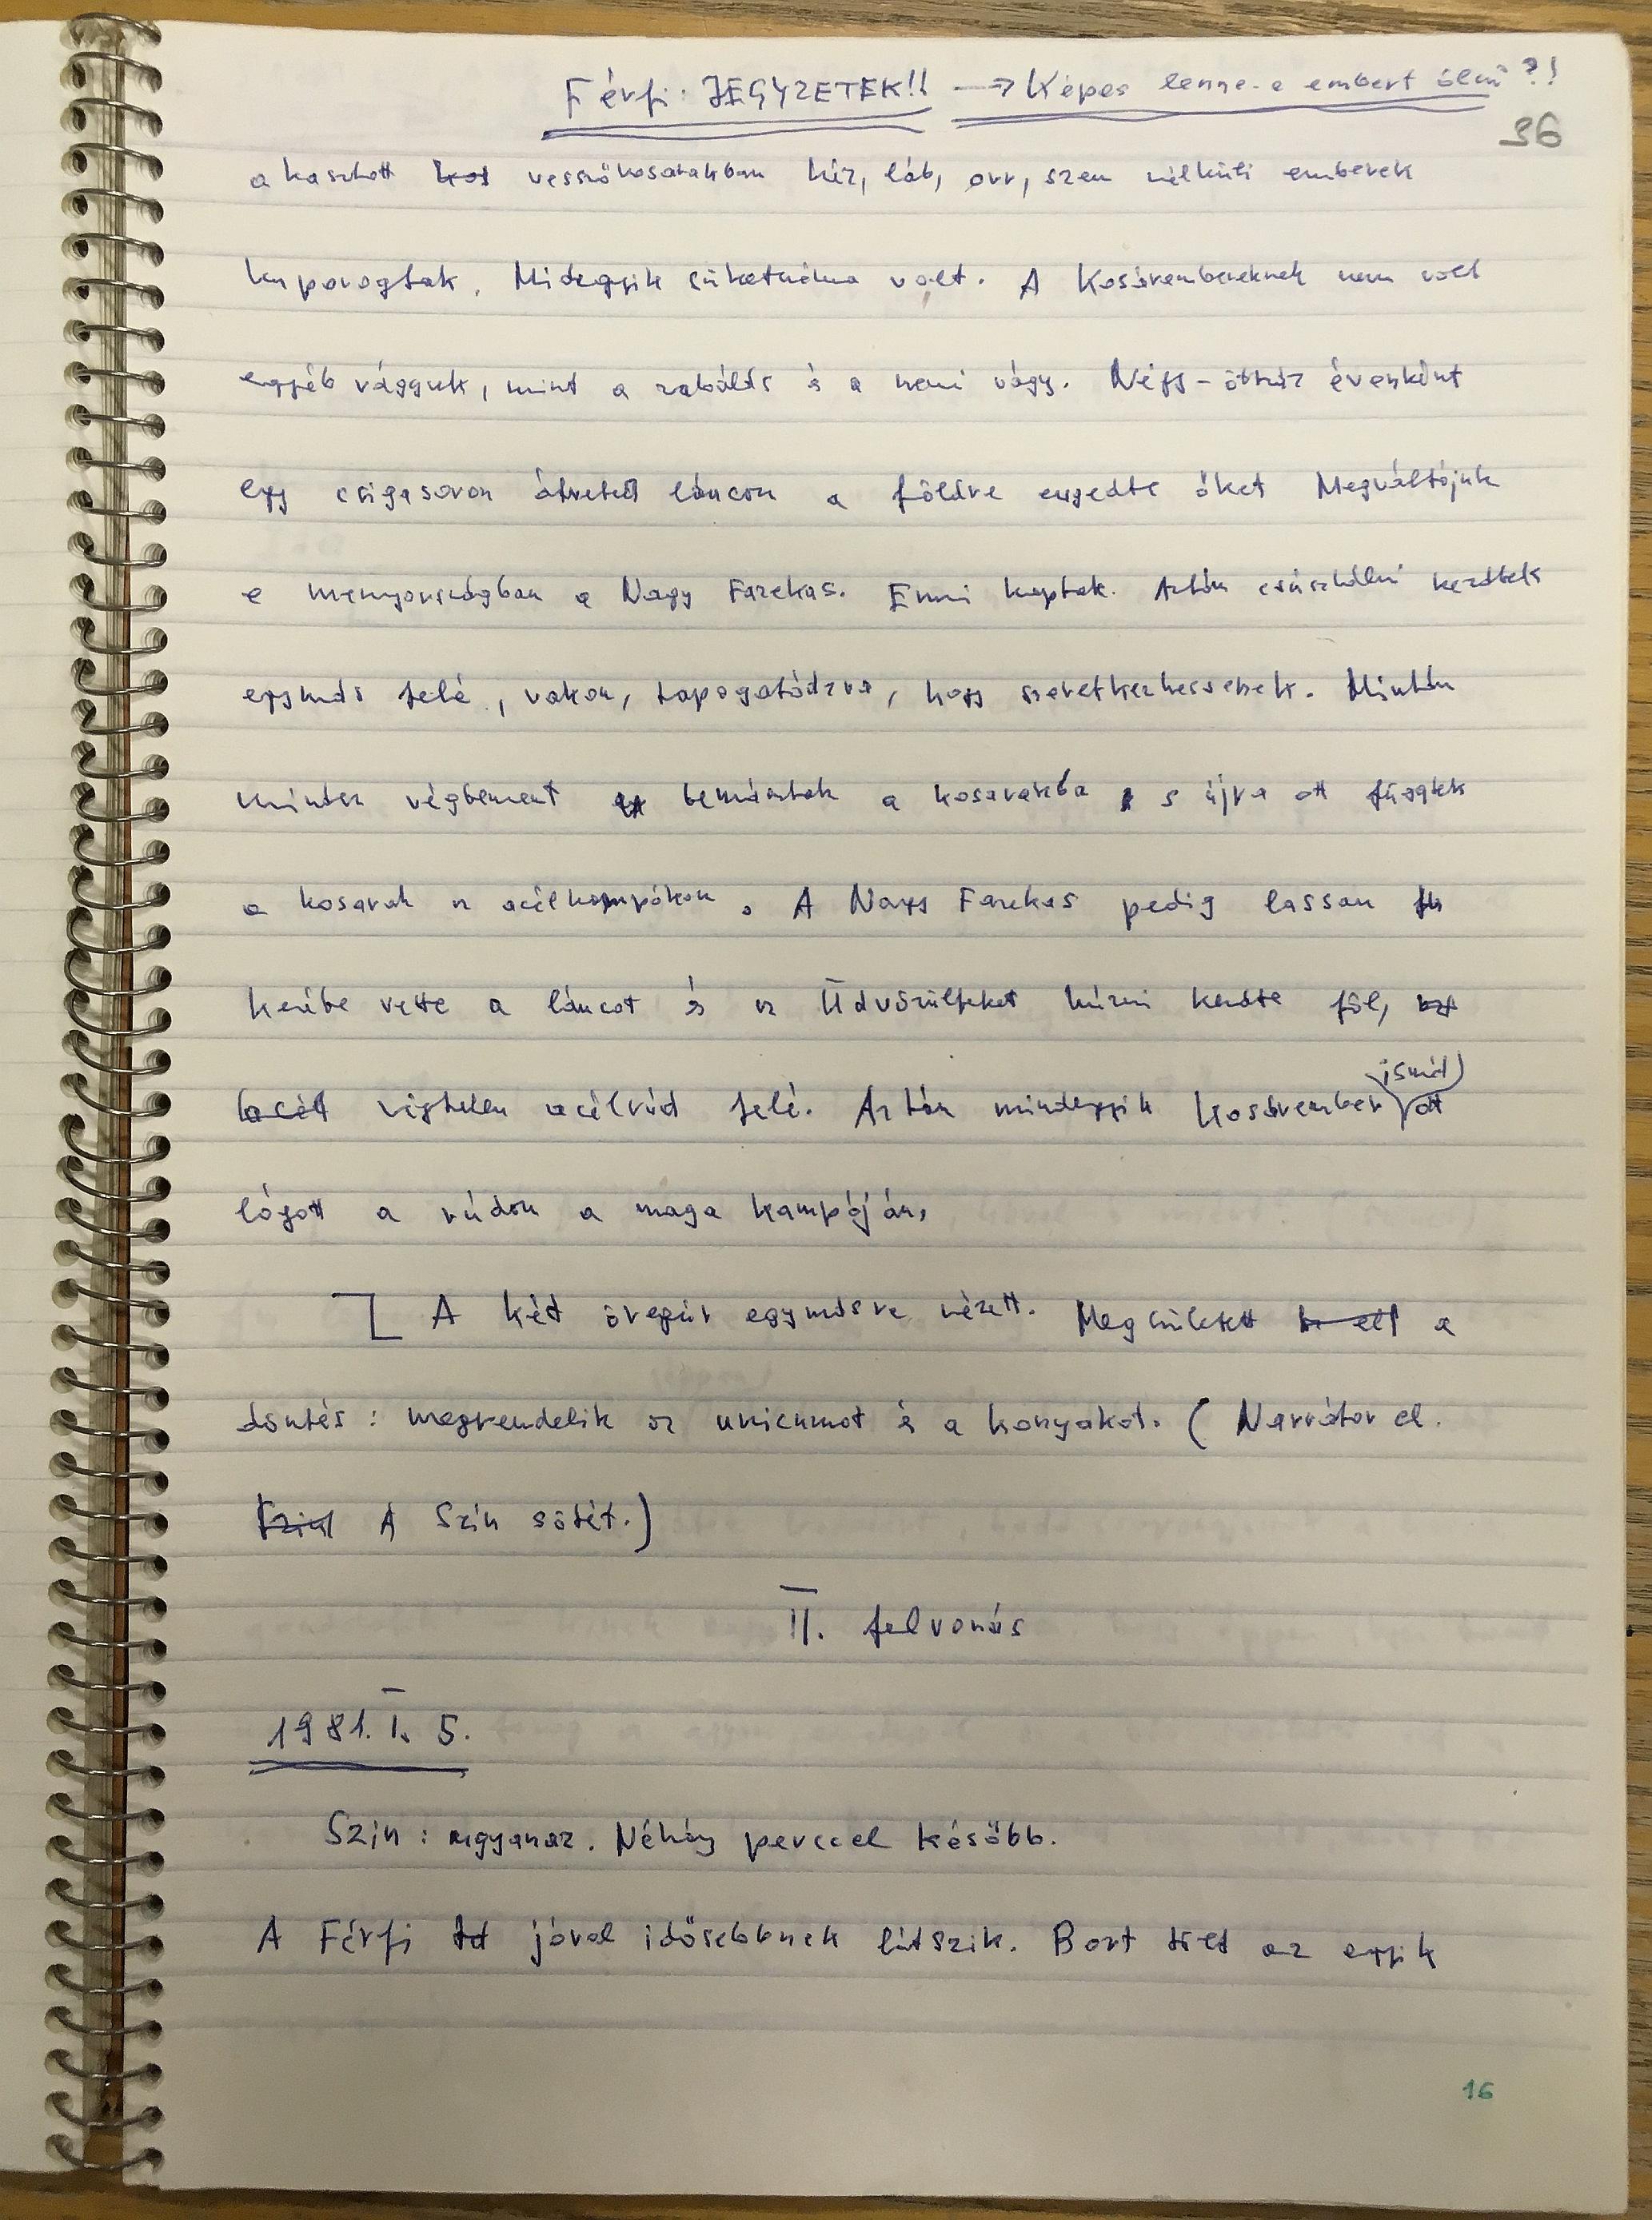 Férfi: JEGYZETEK!! → Képes lenne-e embert ölni?!
36
akasztott kos vesszőkosarakban kéz, láb, orr, szem nélküli emberek
kuporogtak. Midegyik süketnéma volt. A Kosárembereknek nem volt
egyéb vágyuk, mint a zabálás és a nemi vágy. Négy-ötszáz évenként
egy csigasoron átvetett láncon a földre engedte őket Megváltójuk
a mennyországban a Nagy Farekas. Enni kaptak. Aztán csúszkálni kezdtek
egymás felé, vakon, tapogatódzva, hogy szeretkezhessenek. Miután
minden végbement bemásztak a kosarakba s újra ott függtek
a kosarak az acélkampókon. A Nagy Farekas pedig lassan
kezébe vette a láncot és az Üdvözülteket húzni kezdte föl,
acél végtelen acélrúd felé. Aztán mindegyik Kosárember ismét ott
lógott a rúdon a maga kampóján.
A két öregúr egymásra nézett. Megszületett a
döntés: megrendelik az unicumot és a konyakot. (Narrátor el.
Szint A Szín sötét.)
II. felvonás
1981. I. 5.
Szín: ugyanaz. Néhány perccel később.
A Férfi jóval idősebbnek látszik. Bort tölt az egyik
16